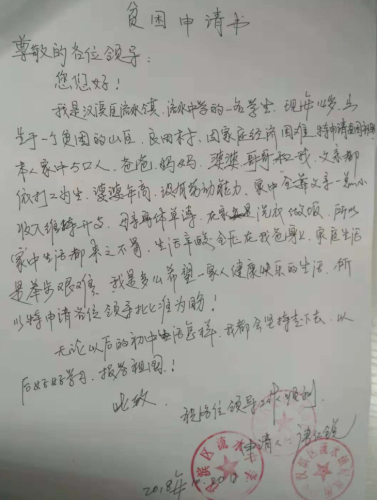 贫困申请书
尊敬的各位领导:
您您好!
我是汉滨区流水镇, 流水中学的一名学生, 现年14岁, 出
生于一个贫困的山区, 良田村, 因家庭经济困难, 特申请贫困
本人家中有5口人, 爸爸, 妈妈, 婆婆, 哥哥和我, 父亲都
依打工为生, 婆婆年高, 没有劳动能力, 家中全靠父亲一点小
收入维持开支, 母亲身体单薄, 在家 洗衣做饭, 所以
家中生活都来之不易, 生活辛酸全压在我爸身上, 家庭生活
是举步艰难, 我是多么希望一家人健康快乐的生活, 所
以特申请各位领导批准为盼!
无论以后的初中生活怎样, 我都会坚持走下去, 以
后好好学习, 报答祖国!
此致
祝各位领导工作顺利
申请人
2018年